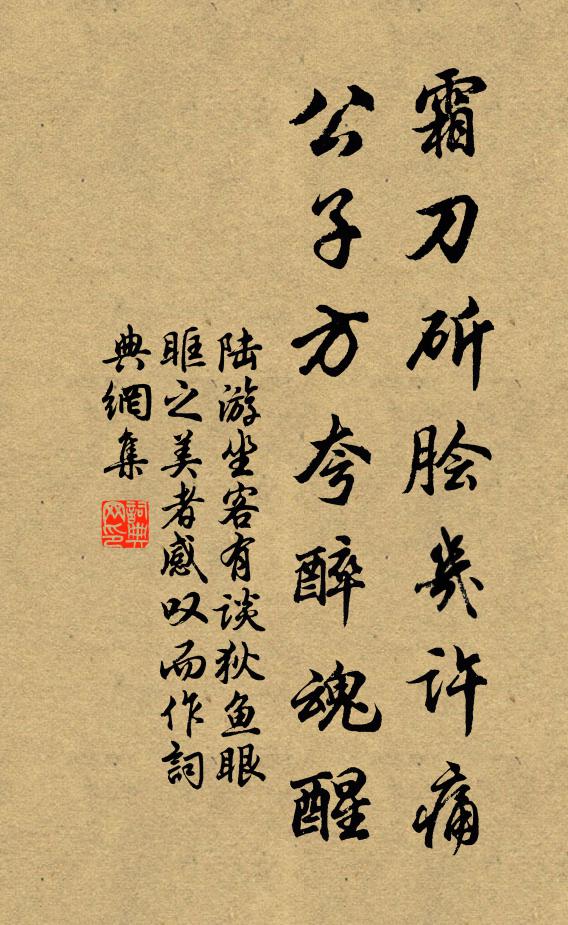 霜刀斫脍几许痛
公子方夸醉魂醒
陆游坐客有谈狄鱼眼
眶之美者感叹而作詞
典網集
詞典网印